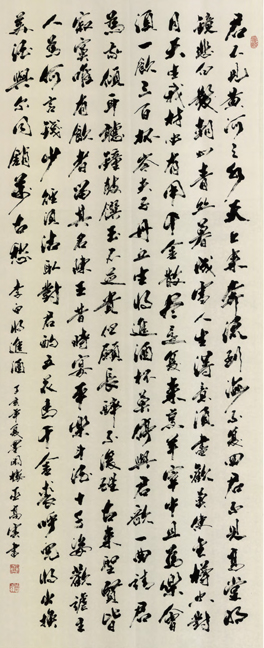 君不見黃河之水天上來奔流到海不復回君不見高堂明
鏡悲白髮朝如青絲暮成雪人生得意須盡歡莫使金樽空對
月天生我材必有用千金散盡還復來烹羊宰牛且為樂會
須一飲三百杯岑夫子丹丘生將進酒杯莫停與君歌一曲請君
為我傾耳聽鐘鼓饌玉不足貴但願長醉不復醒古來聖賢皆
寂寞唯有飲者留其名陳王昔時宴平樂斗酒十千恣歡謔主
人為何言錢少徑須沽取對君酌五花馬千金裘呼兒將出換
美酒與爾同銷萬古愁 李白將進酒 丁亥年夏 書